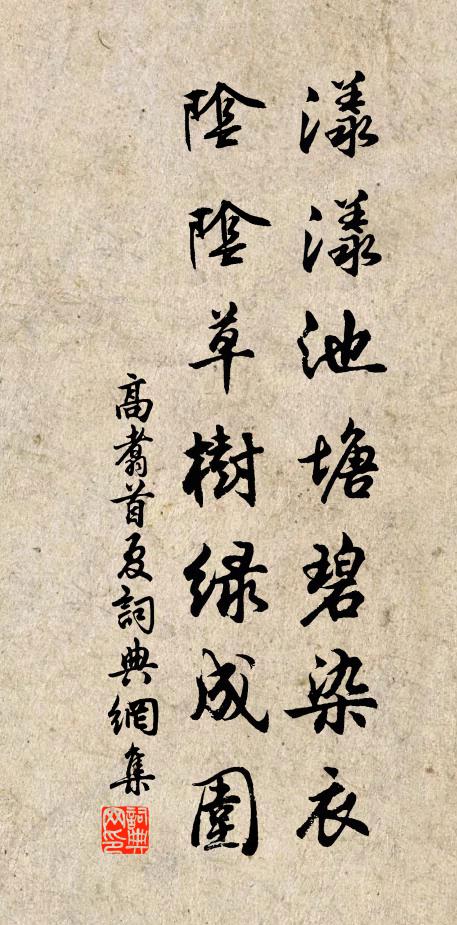 漾漾池塘碧染衣
陰陰草樹綠成圍
高翥首夏詞典網集
詞典網印